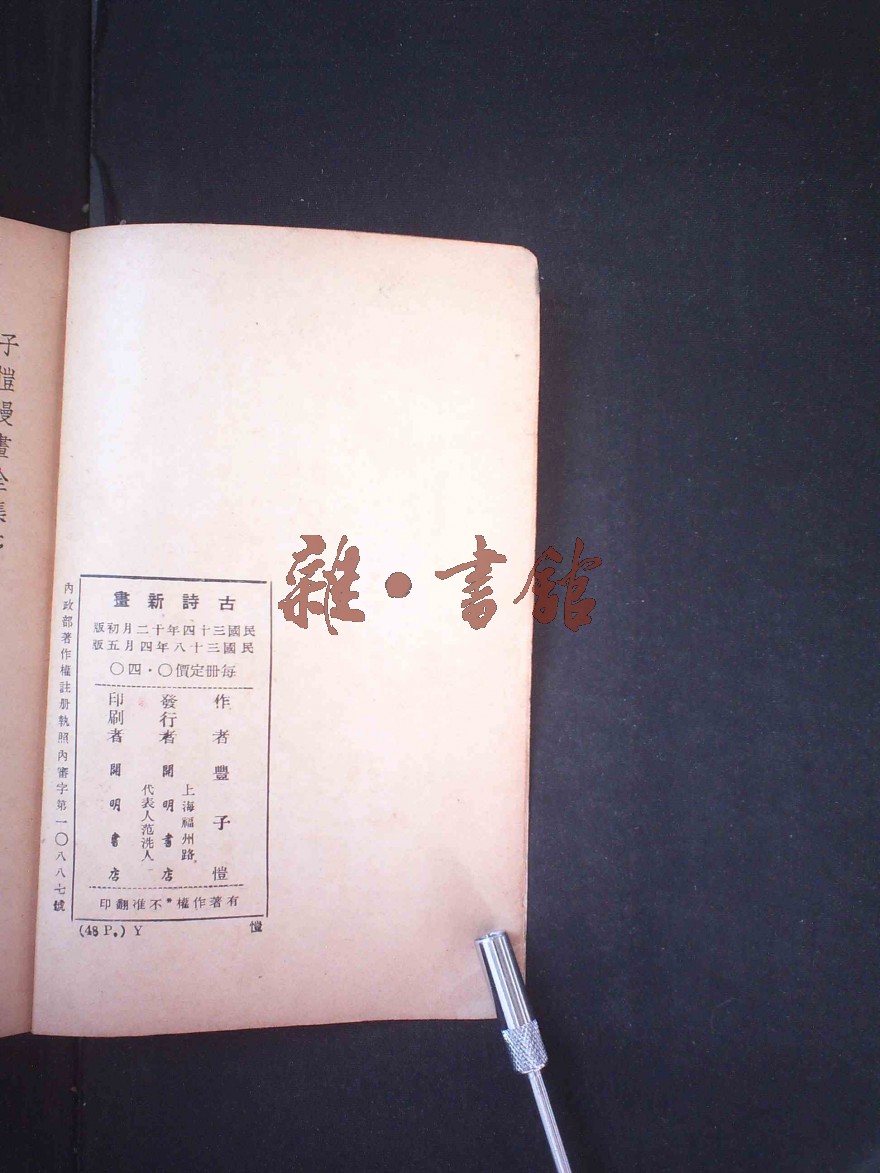 古詩新畫
民國三十四年十二月初版
民國三十八年四月五版
每冊定價〇·四〇
作者 豐子愷
發行者 開明書店
上海福州路
代表人范洗人
印刷者 開明書店
有著作權*不准翻印
內政部著作權註册執照內審字第一〇八八七號
(48 P.) Y
愷
子愷漫畫全集
雜·書館